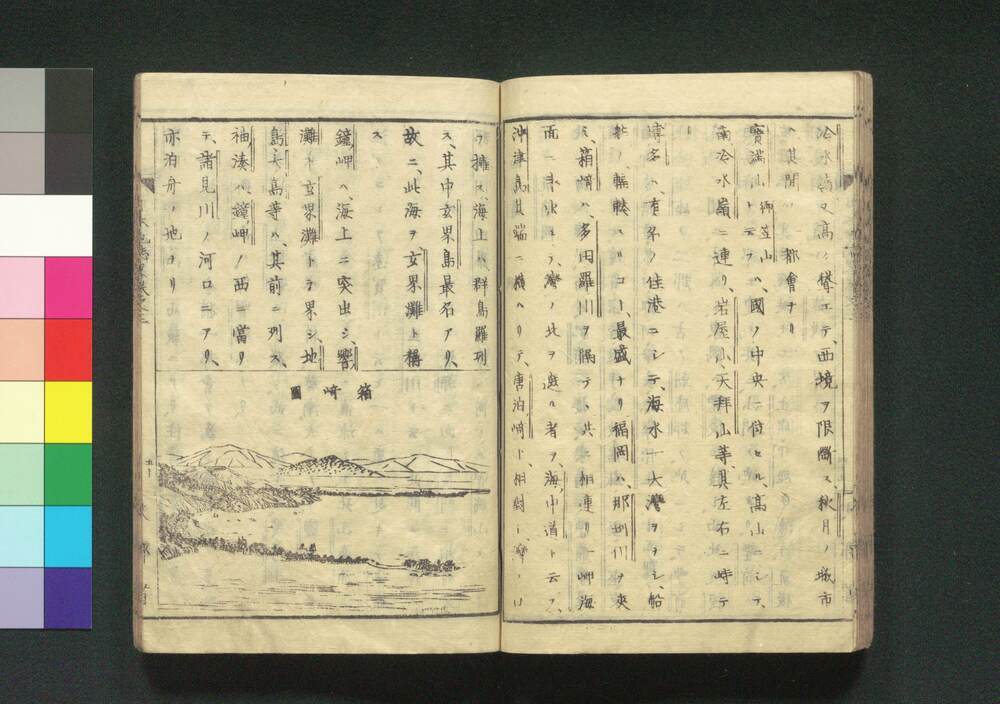 冷水嶺又高ク聳エテ、西境ヲ限斷ス、秋月ノ城市
ハ其間ノ都會ナリ
寳滿山竈笠山トモ云フハ、國ノ中央ニ位セル高山ニシテ、
南冷水嶺ニ連リ、岩屋山、天拜山等、其左右ニ峙テ
リ
博多ハ、有名ノ佳港ニシテ、海水一大灣ヲナシ、船
舶ノ輻輳スルコト、最盛ナリ、福岡ハ、那珂川ヲ夾
ミ、箱崎ハ、多田羅川ヲ隔テ、共ニ相連リ、一岬海
面ニ斗出シテ、灣ノ北ヲ遮ル者ヲ、海中道ト云フ、
沖津島其端ニ横ハリテ、唐泊崎ト相對シ、灣ノ口
ヲ擁ス、海上ハ群島羅列
ス、其中玄界島最名アリ、
故ニ、此海ヲ、玄界灘ト稱
ス
鐘岬ハ、海上ニ突出シ、響
灘ト玄界灘トヲ界シ、地
島、大島等ハ、其前ニ列ス、
袖湊ハ、鐘岬ノ西ニ當リ
テ、諸見川ノ河口ニアリ、
亦泊舟ノ地ナリ
箱崎圖